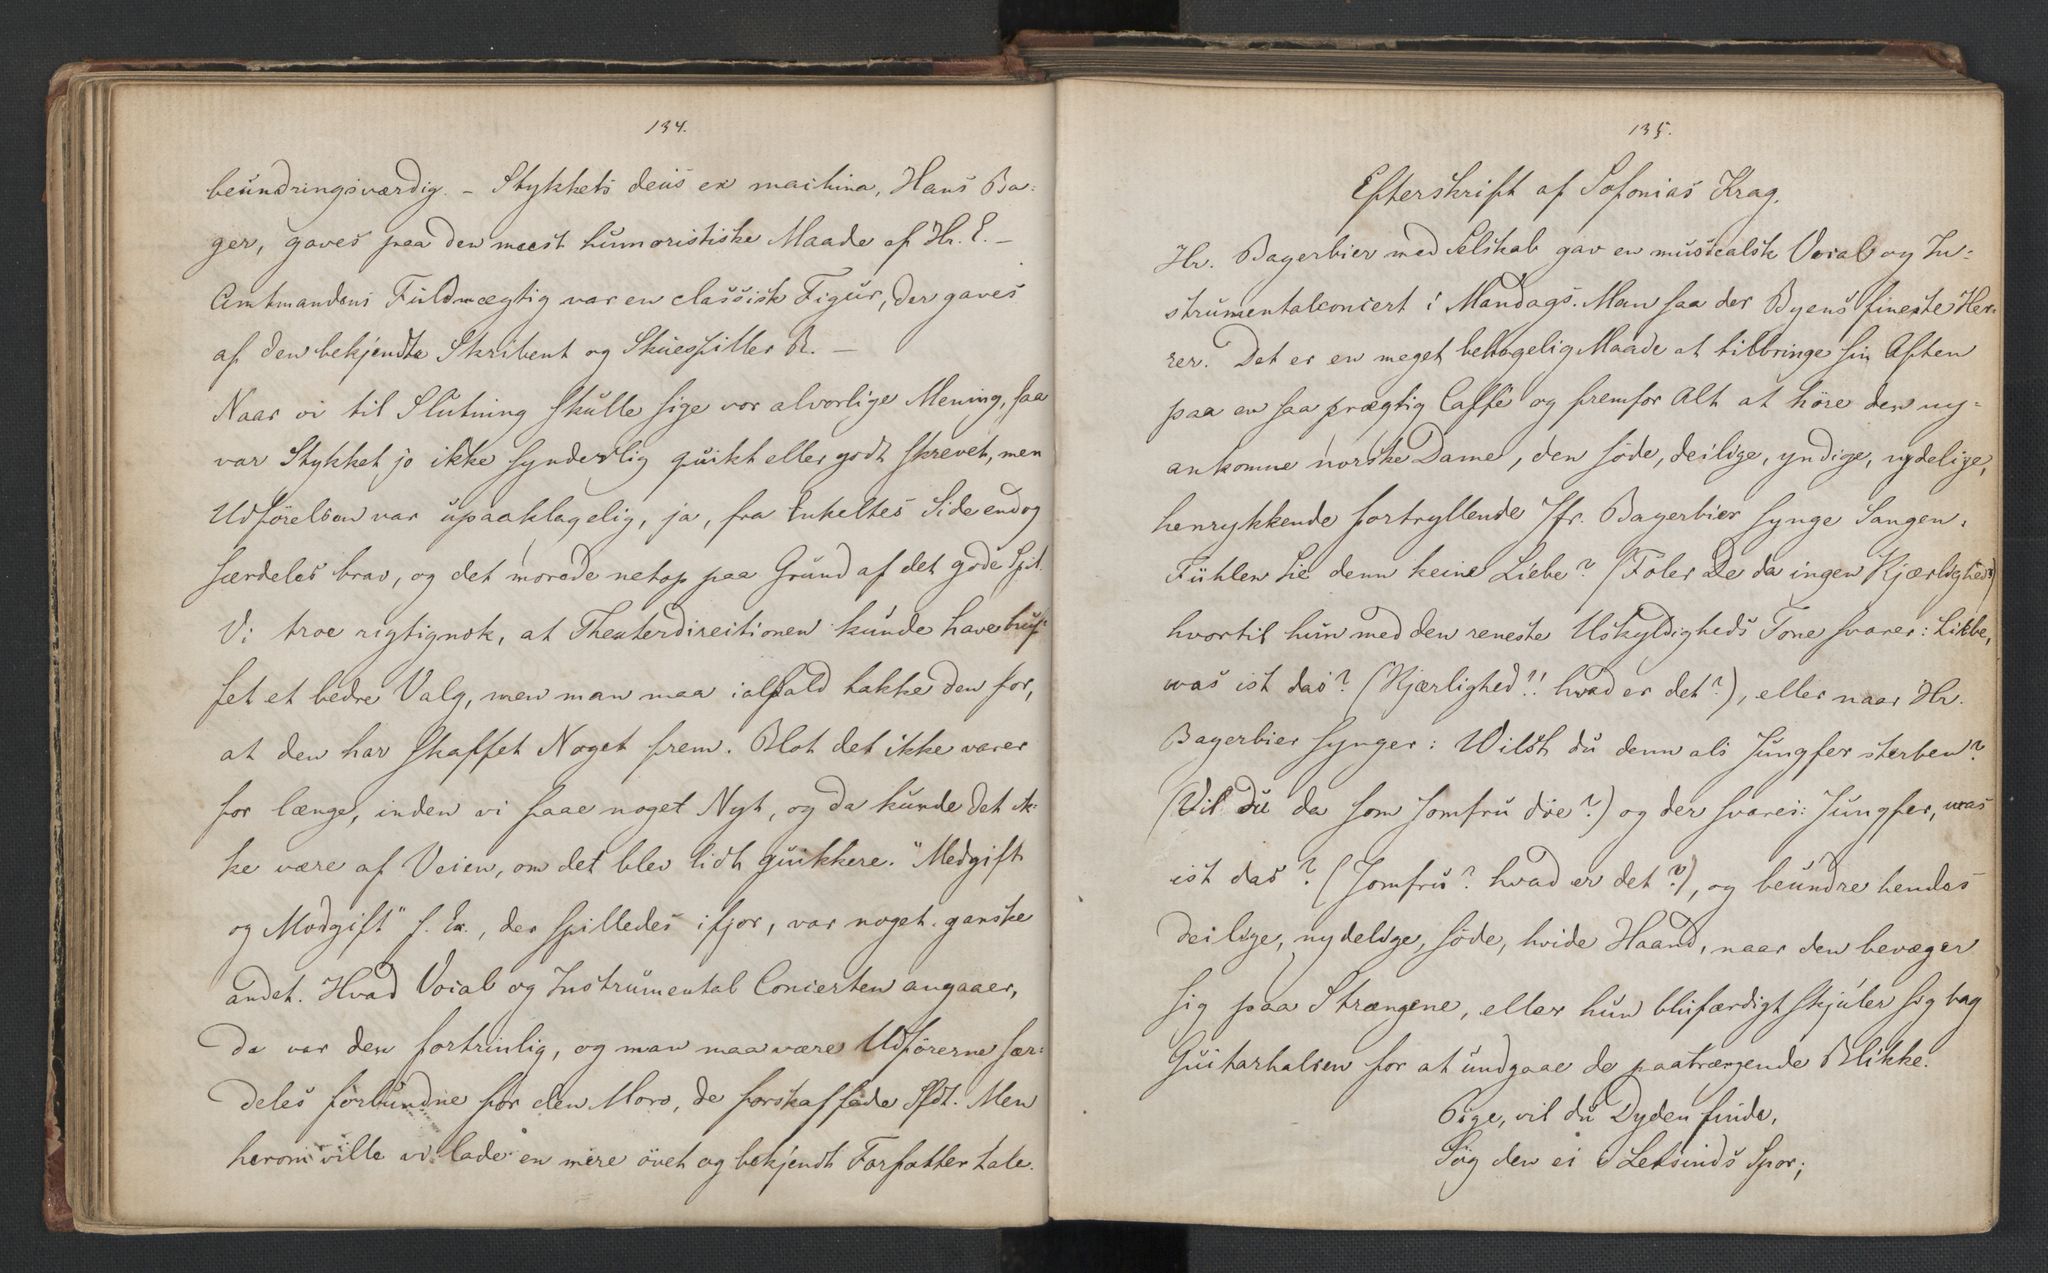 134.
beundringsværdig. – Stykkets deus ex machina, Hans Ba-
ger, gaves paa den meest humoristiske Maade af Hr. E. –
Amtmandens Fuldmægtig var en classisk Figur, der gaves
af den bekjendte Skribent og Skuespiller R. –
Naar vi til Slutning skulle sige vor alvorlige Mening, saa
var Stykket jo ikke synderlig quikt eller godt skrevet, men
Udførelsen var upaaklagelig, ja, fra Enkeltes Side endog
særdeles brav, og det morede netop paa Grund af det gode Spil.
Vi troe rigtignok, at Theaterdirectionen kunde have truf-
fet et bedre Valg, men man maa ialfald takke den for,
at den har skaffet Noget frem. Blot det ikke varer
for længe, inden vi faae noget Nyt, og da kunde det ik-
ke være af Veien, om det blev lidt quikkere. "Medgift
og Modgift" f. Ex., der spilledes ifjor, var noget ganske
andet. Hvad Vocal og Instrumental Concerten angaaer,
da var den fortrinlig, og man maa være Udførerne sær-
deles forbundne for den Moro, de forskaffede Sfdt. Men
herom ville vi lade en mere øvet og bekjendt Forfatter tale.
135.
Efterskrift af Sofonias Krag.
Hr. Bayerbier med Selskab gav en musicalsk Vocal og In-
strumentalconcert i Mandags. Man saa der Byens fineste Her-
rer. Det er en meget behagelig Maade at tilbringe sin Aften
paa en saa prægtig Caffe og fremfor Alt at höre den ny-
ankomne norske Dame, den söde, deilige, yndige, nydelige,
henrykkende fortryllende Jfr. Bayerbier synge Sangen:
Fühlen Sie denn keine Liebe? (Föler De da ingen Kjærlighed?)
hvortil hun med den reneste Uskyldigheds Tone svarer: Liebe,
was ist das? (Kjærlighed!! hvad er det?), eller naar Hr.
Bayerbier synger: Wilst du denn als Jungfer sterben?
(Vil du da som Jomfru döe?) og der svares: Jungfer, was
ist das? (Jomfru? hvad er det?), og beundre hendes
deilige, nydelige, söde, hvide Haand, naar den bevæger
sig paa Strængene, eller hun blufærdigt skjuler sig bag
Guitarhalsen for at undgaae de paatrængende Blikke.
Pige, vil du Dyden finde,
Søg den ei i Letsinds Spor;